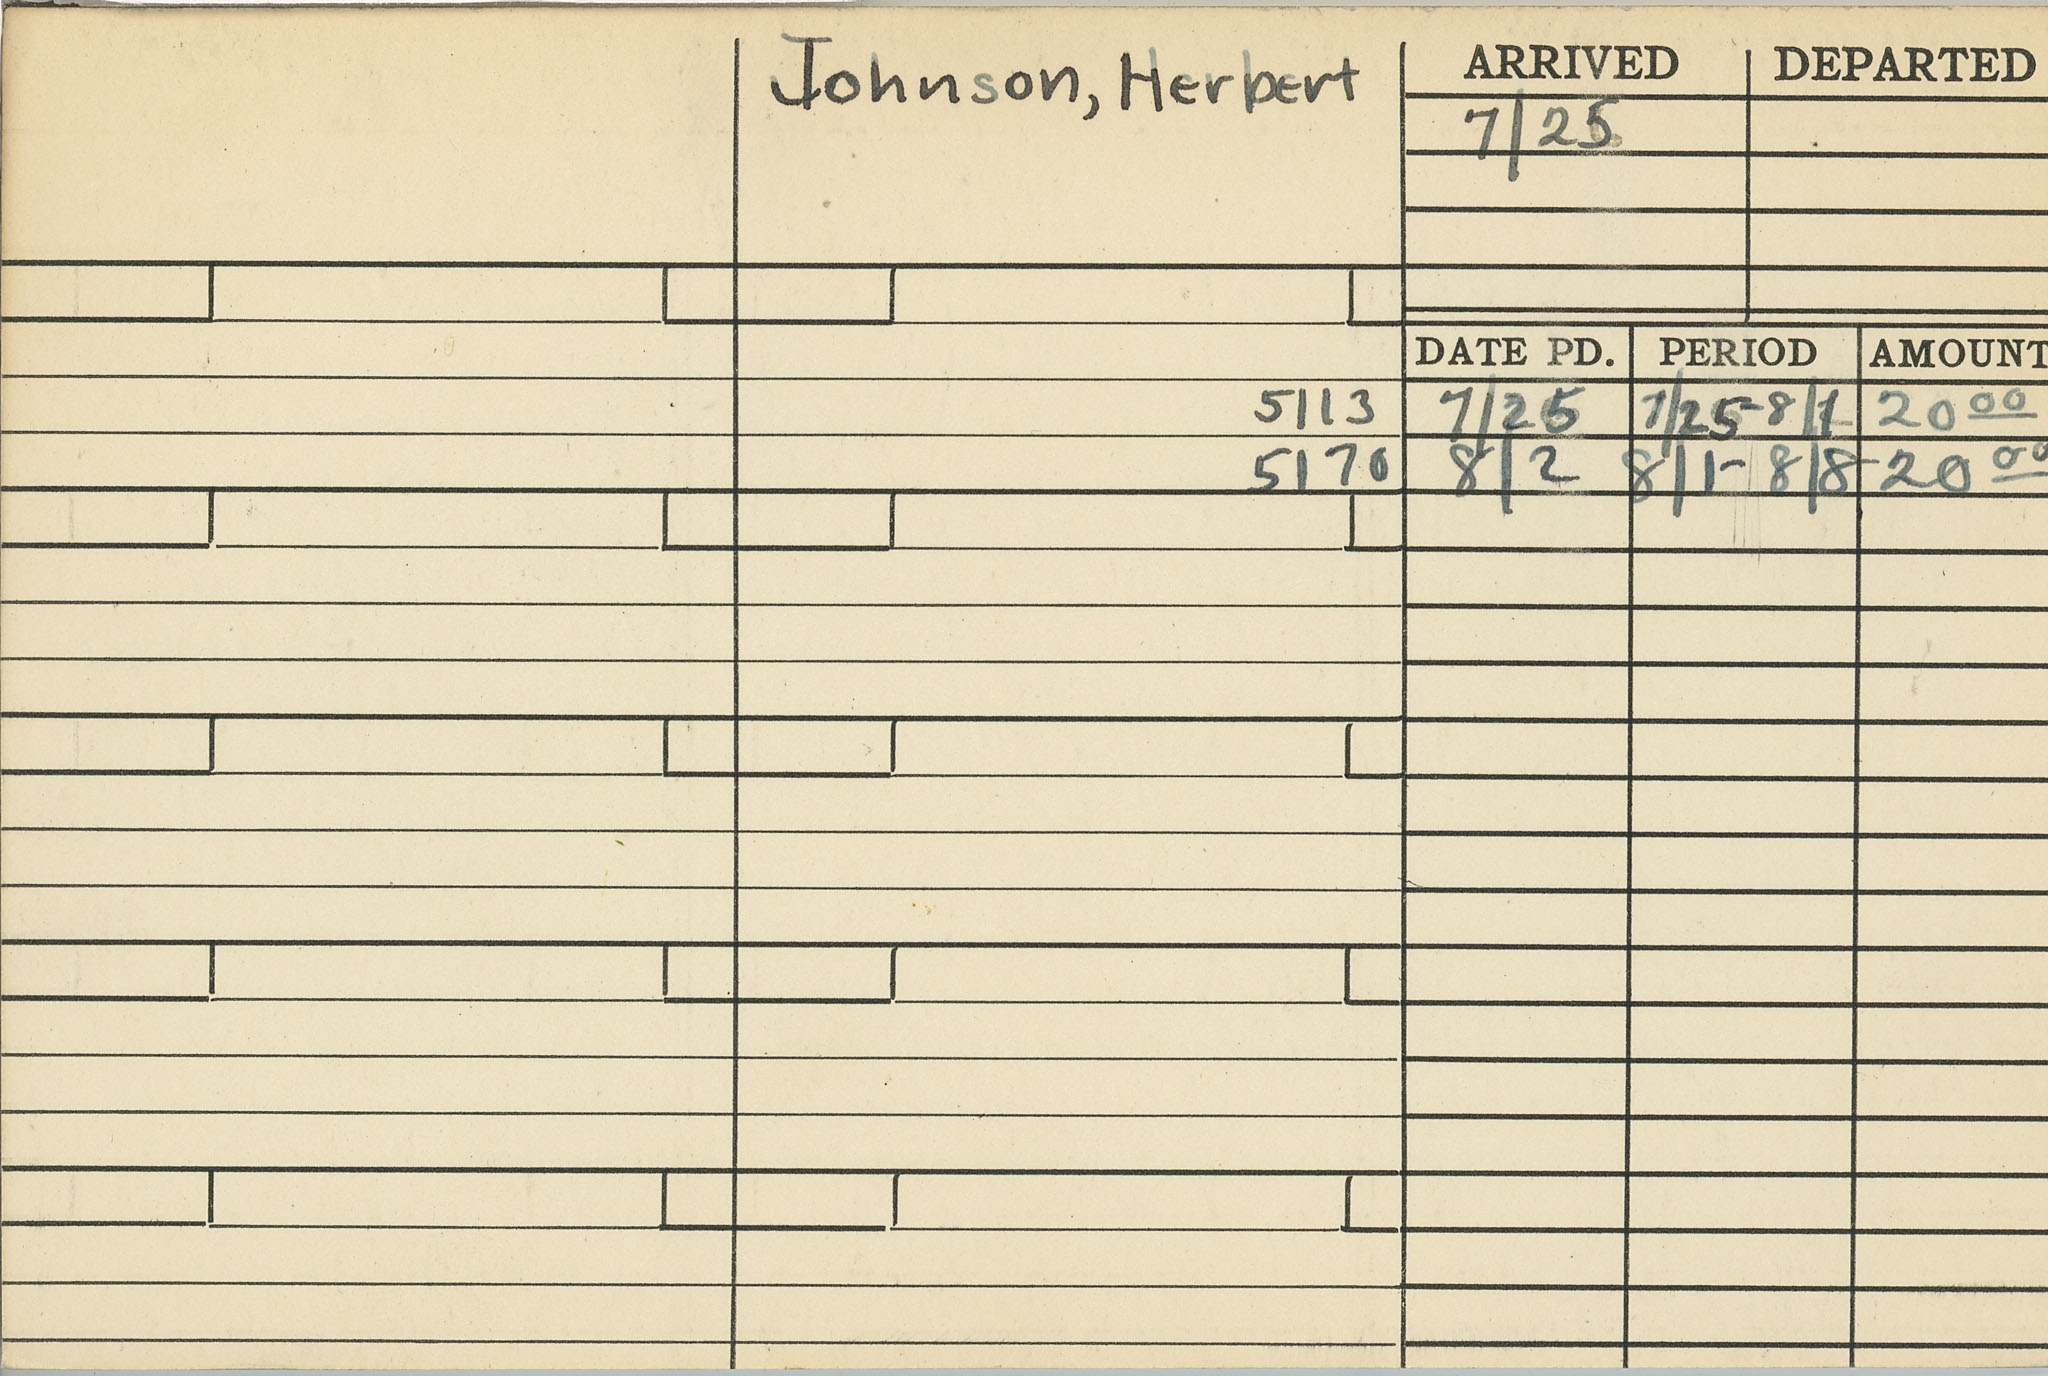 Johnson, Herbert
ARRIVED DEPARTED
7/25
DATE PD. PERIOD AMOUNT
5113 7/25 7/25-8/1 20 00
5170 8/2 8/1-8/8 20 00